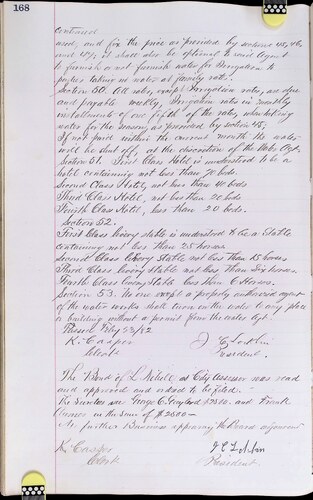 168
continued
used, and fix the price as provided by sections 45, 46
and 47½ it shall also be optional to said Agent
to furnish or not furnish water for Irrigation to
parties taking no water at family rate.
Section 50. All rates, except Irrigation rates, are due
and payable weekly, Irrigation rates in weekly
installments of one fifth of the rates, when taking
water for the season, as provided by section 48,
If not paid within the current month the water
will be shut off, at the discretion of the Water Agt.
Section 51. First Class Hotel is understood to be a
hotel containing not less than 70 beds
Second Class Hotel, not less than 40 beds
Third Class Hotel, not less than 20 beds
Fourth Class Hotel, less than 20 beds.
Section 52.
First Class livery stable is understood to be a Stable
containing not less than 25 horses
Second Class livery Stable not less than 15 horses
Third Class livery Stable not less than Six horses
Fourth Class livery Stable less than 6 Horses.
Section 53. No one except a properly authorized agent
of the water works shall turn on the water to any place
or building without a permit from the water Agt.
Passed Feby 23/92
K. Casper
Clerk
President.
The Bond of as City Assessor was read
and approved and ordered to be filed.
The Sureties are George C. $2500. and Frank
in the Sum of $2500
No further Business appearing the Board adjourned
K. Casper
Clerk
President